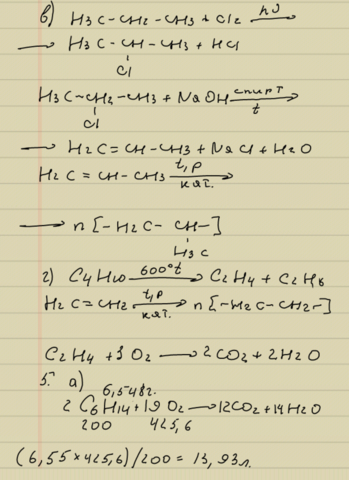 в) H3C-CH2-CH3 + Cl2 hν
→ H3C-CH-CH3 + HCl
Cl
H3C-CH2-CH3 + NaOH спирт
Cl t
→ H2C=CH-CH3 + NaCl + H2O
H2C=CH-CH3 t,p
кат.
→ n[-H2C-CH-]
H3C
г) C4H10 600°t → C2H4 + C2H6
H2C=CH2 t,p → n[-H2C-CH2-]
кат.
C2H4 + 3O2 → 2CO2 + 2H2O
5. а)
6,548г.
2C6H14 + 19O2 → 12CO2 + 14H2O
200 425,6
(6,55×425,6)/200 = 13,93л.